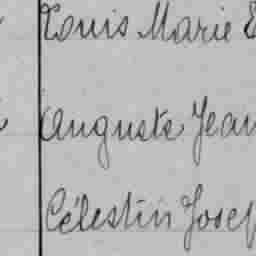 Louis Marie E
Auguste Jean
Célestin Josep